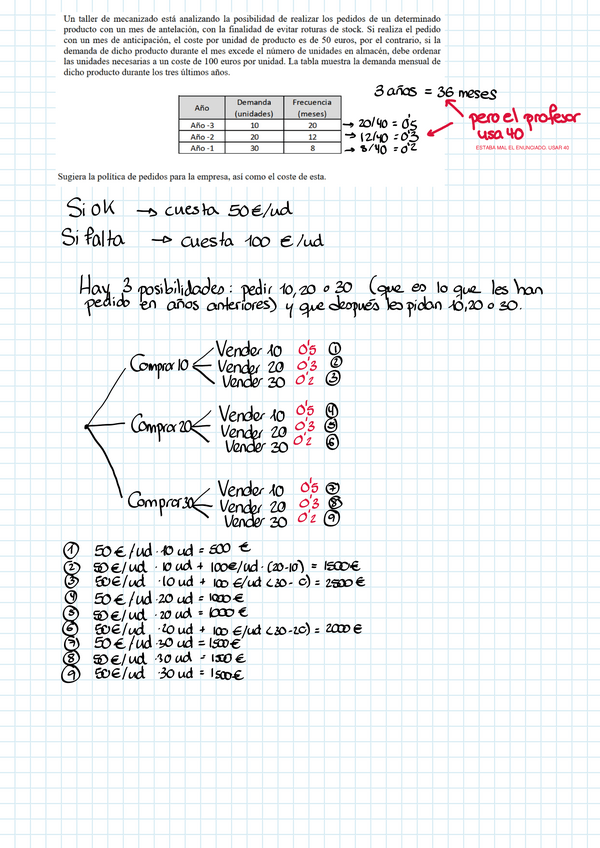 Un taller de mecanizado está analizando la posibilidad de realizar los pedidos de un determinado
producto con un mes de antelación, con la finalidad de evitar roturas de stock. Si realiza el pedido
con un mes de anticipación, el coste por unidad de producto es de 50 euros, por el contrario, si la
demanda de dicho producto durante el mes excede el número de unidades en almacén, debe ordenar
las unidades necesarias a un coste de 100 euros por unidad. La tabla muestra la demanda mensual de
dicho producto durante los tres últimos años.
3 años = 36 meses
Año Demanda (unidades) Frecuencia (meses)
Año -3 10 20 → 20/40 = 0'5
Año -2 20 12 → 12/40 = 0'3
Año -1 30 8 → 8/40 = 0'2
pero el profesor
usa 40
ESTABA MAL EL ENUNCIADO. USAR 40
Sugiera la política de pedidos para la empresa, así como el coste de esta.
Si ok → cuesta 50 €/ud
Si falta → cuesta 100 €/ud
Hay 3 posibilidades: pedir 10, 20 o 30 (que es lo que les han
pedido en años anteriores) y que después les pidan 10, 20 o 30.
Comprar 10
Vender 10 0'5 ①
Vender 20 0'3 ②
Vender 30 0'2 ③
Comprar 20
Vender 10 0'5 ④
Vender 20 0'3 ⑤
Vender 30 0'2 ⑥
Comprar 30
Vender 10 0'5 ⑦
Vender 20 0'3 ⑧
Vender 30 0'2 ⑨
① 50 €/ud · 10 ud = 500 €
② 50 €/ud · 10 ud + 100 €/ud · (20-10) = 1500 €
③ 50 €/ud · 10 ud + 100 €/ud (30- 0) = 2500 €
④ 50 €/ud · 20 ud = 1000 €
⑤ 50 €/ud · 20 ud = 1000 €
⑥ 50 €/ud · 20 ud + 100 €/ud (30-20) = 2000 €
⑦ 50 €/ud · 30 ud = 1500 €
⑧ 50 €/ud · 30 ud = 1500 €
⑨ 50 €/ud · 30 ud = 1500 €